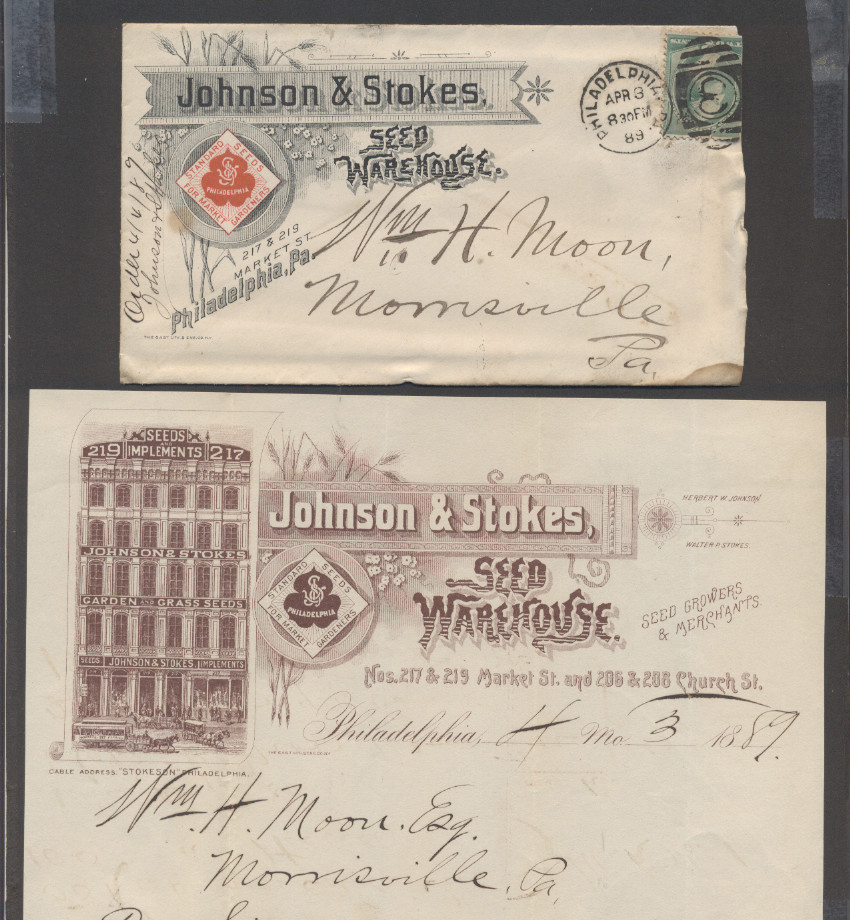 Johnson & Stokes,
SEED
WAREHOUSE.
STANDARD SEEDS
PHILADELPHIA
FOR MARKET GARDENERS
217 & 219
MARKET ST.
Philadelphia, Pa.
Order 4/6/89
Johnson & Stokes
PHILADELPHIA
APR 3
830 PM
89
Wm H. Moon,
Morrisville
Pa,
SEEDS
AND
219 IMPLEMENTS 217
JOHNSON & STOKES
GARDEN AND GRASS SEEDS
SEEDS JOHNSON & STOKES IMPLEMENTS
CABLE ADDRESS: "STOKESON" PHILADELPHIA.
Johnson & Stokes,
SEED
WAREHOUSE.
STANDARD SEEDS
PHILADELPHIA
FOR MARKET GARDENERS
HERBERT W. JOHNSON
WALTER P. STOKES.
SEED GROWERS
& MERCHANTS.
Nos. 217 & 219 Market St. and 206 & 208 Church St.
Philadelphia, 4 Mo. 3 1889.
Wm. H. Moon. Esq.
Morrisville, Pa,